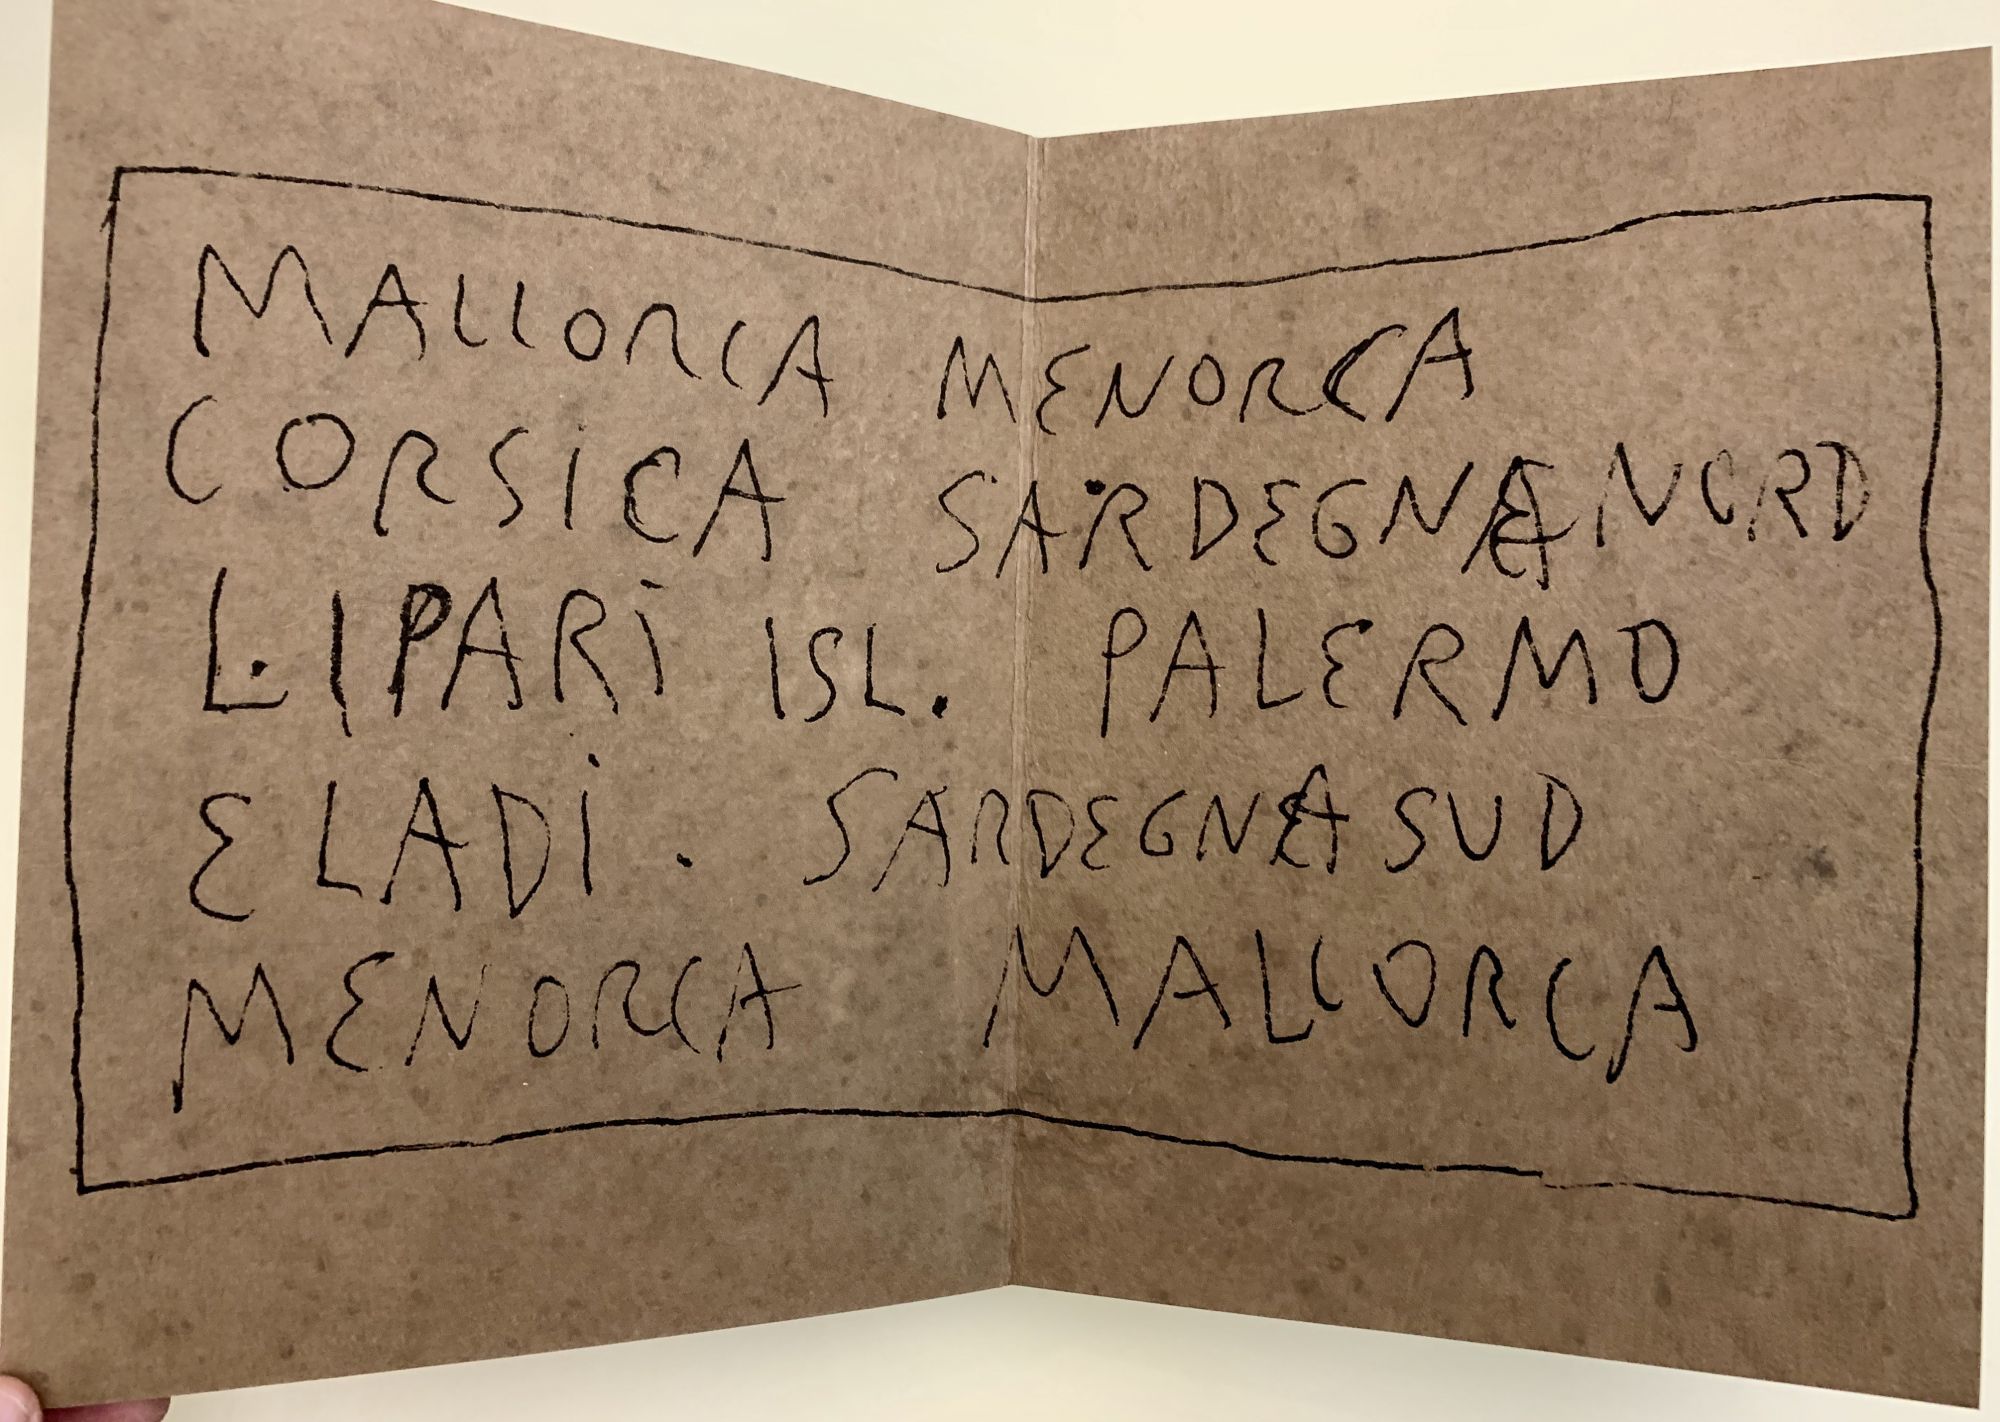 MALLORCA MENORCA
CORSICA SARDEGNA NORD
LIPARI ISL. PALERMO
ELADI. SARDEGNA SUD
MENORCA MALLORCA